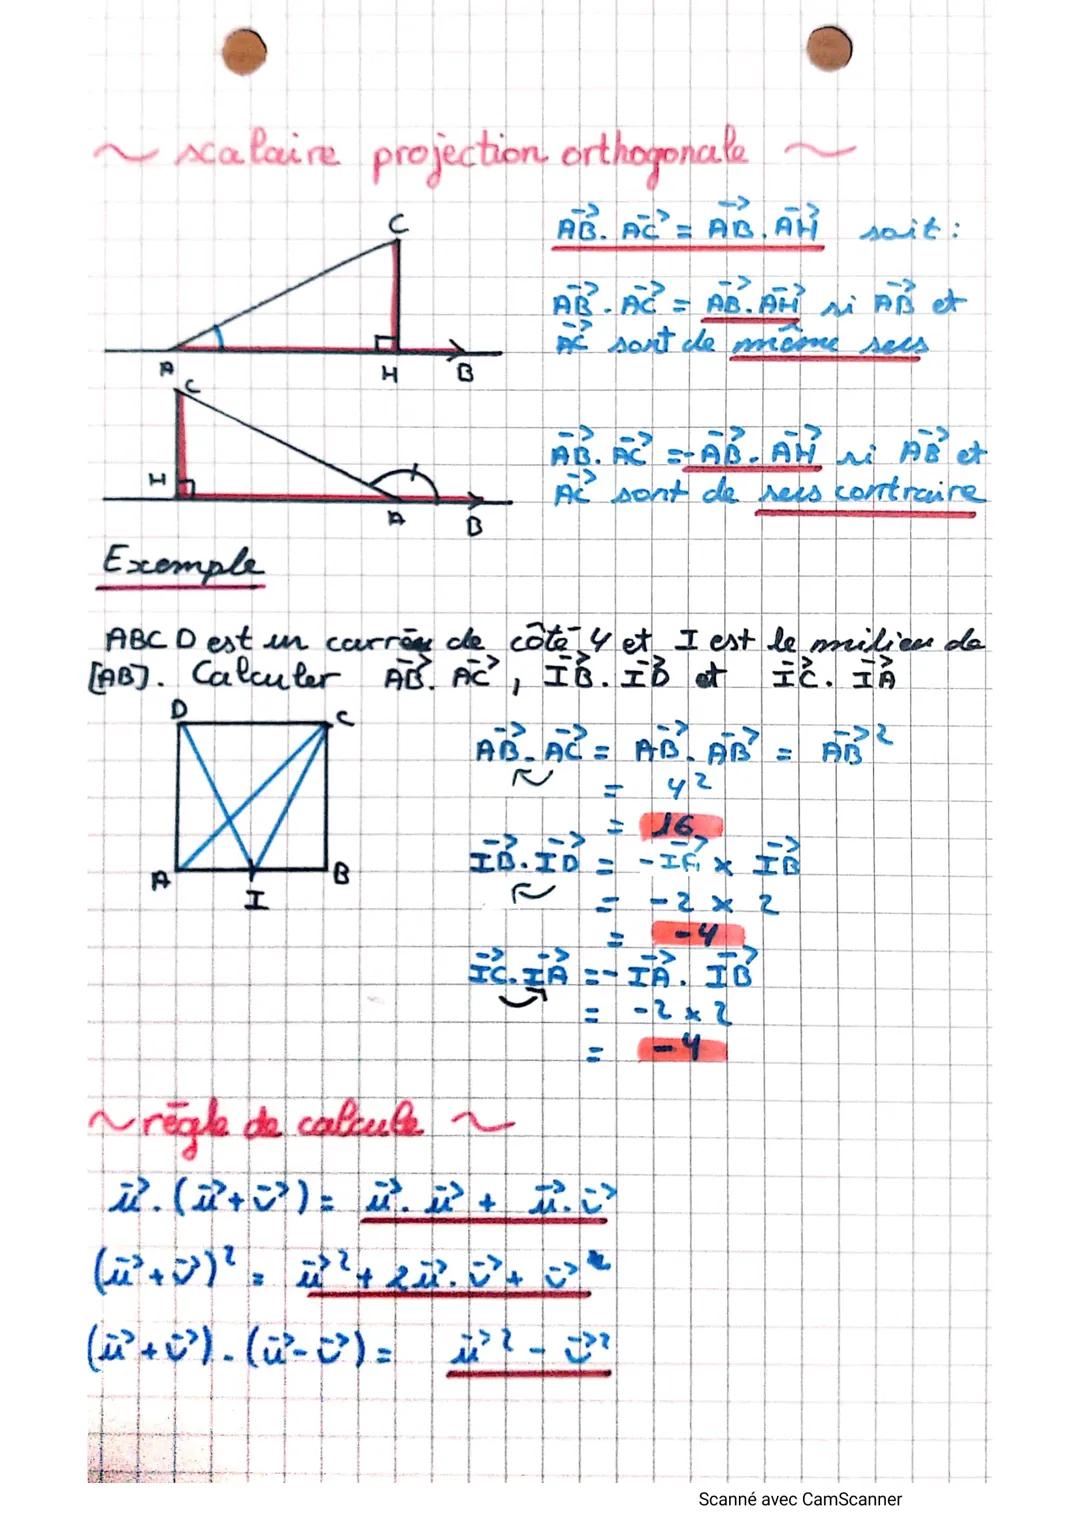 ~ scalaire projection orthogonale ~
C
A H B
AB⃗. AC⃗ = AB⃗. AH⃗ soit :
AB⃗. AC⃗ = AB⃗. AH⃗ si AB⃗ et
AC⃗ sont de même sens
C
H
A B
AB⃗. AC⃗ = -AB⃗. AH⃗ si AB⃗ et
AC⃗ sont de sens contraire
Exemple
ABCD est un carrée de côté 4 et I est le milieu de
[AB]. Calculer AB⃗. AC⃗, IB⃗. ID⃗ et IC⃗. IA⃗
D C
A I B
AB⃗. AC⃗ = AB⃗. AB⃗ = AB⃗²
= 4²
= 16
IB⃗. ID⃗ = -IA⃗ × IB⃗
= -2 × 2
= -4
IC⃗. IA⃗ = -IA⃗. IB⃗
= -2 × 2
= -4
~ règle de calcule ~
u⃗.(u⃗+v⃗) = u⃗. u⃗ + u⃗. v⃗
(u⃗+v⃗)² = u⃗² + 2u⃗. v⃗ + v⃗²
(u⃗+v⃗).(u⃗-v⃗) = u⃗² - v⃗²
Scanné avec CamScanner